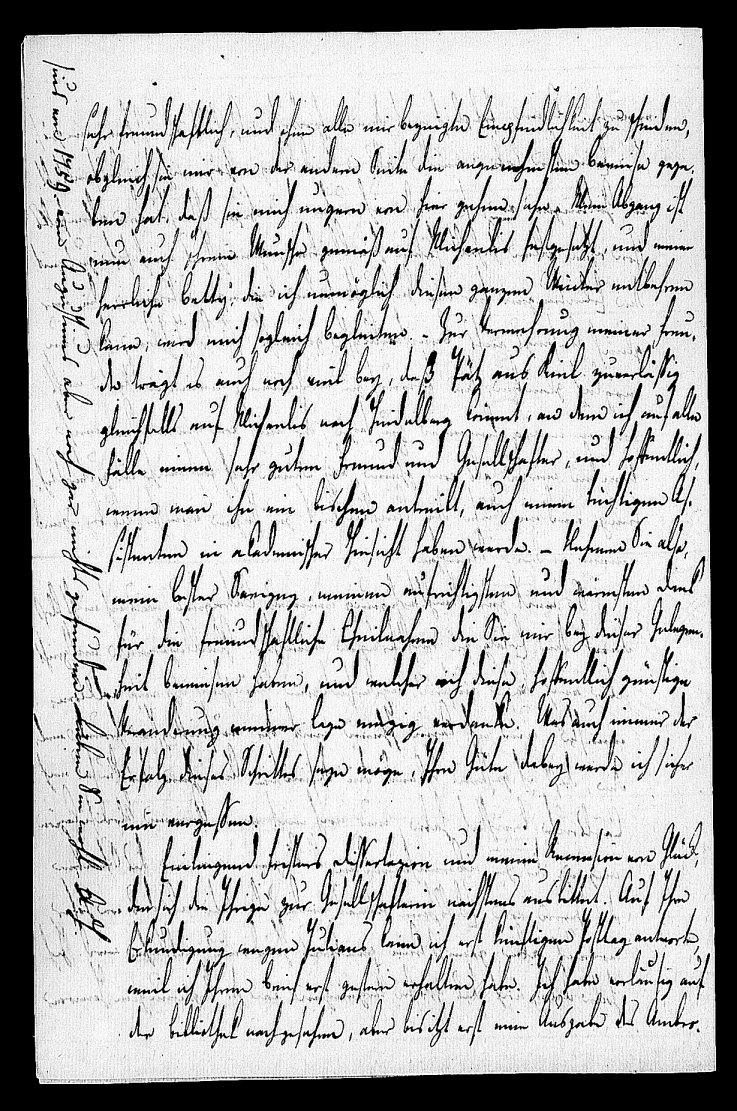 sehr freundschaftlich, und ohne alle mir bezeigte Empfindlichkeit zu scheiden,
obgleich sie mir von der andern Seite die angenehmsten beweise gege-
ben hat, daß sie mich ungern von hier gehen sehe. Mein Abgang ist
nun auch Ihrem Wunsche gemäß auf Michaelis festgesetzt, und meine
herrliche betty, die ich unmöglich diesen ganzen Winter entbehren
kann, wird mich sogleich begleiten. – Zur Vermehrung meiner Freu-
de trägt es auch noch viel bey, daß Pätz aus Kiel zuverlässig
gleichfalls auf Michaelis nach Heidelberg kömmt, an dem ich auf alle
Fälle einen sehr guten Freund und Gesellschafter, und hoffentlich,
wenn man ihn ein bischen antreibt, auch einen tüchtigen As-
sistenten in akademischer Hinsicht haben werde. – Nehmen Sie also,
mein bester Savigny, meinen aufrichtigsten und wärmsten Dank
für die freundschaftliche Theilnahme die Sie mir bey dieser Gelegen-
heit bewiesen haben, und welcher ich diese, hoffentlich günstige
Veränderung meiner lage einzig verdanke. Was auch immer der
Erfolg dieses Schrittes seyn möge, Ihre Güte dabey werde ich sicher
nie vergessen.
Einliegend dissertazion und meine Recension von Glück,
die sich die Ihrige zur Gesellschafterin nächstens ausbittet. Auf Ihre
Erkundigung wegen Julians kann ich erst künftigen Posttag antworten,
weil ich Ihren brief erst gestern erhalten habe. Ich habe vorläufig auf
der bibliothek nachgesehen, aber bis itzt erst eine Ausgabe des
und 1759. aber noch gar nicht gefunden. haben Sie